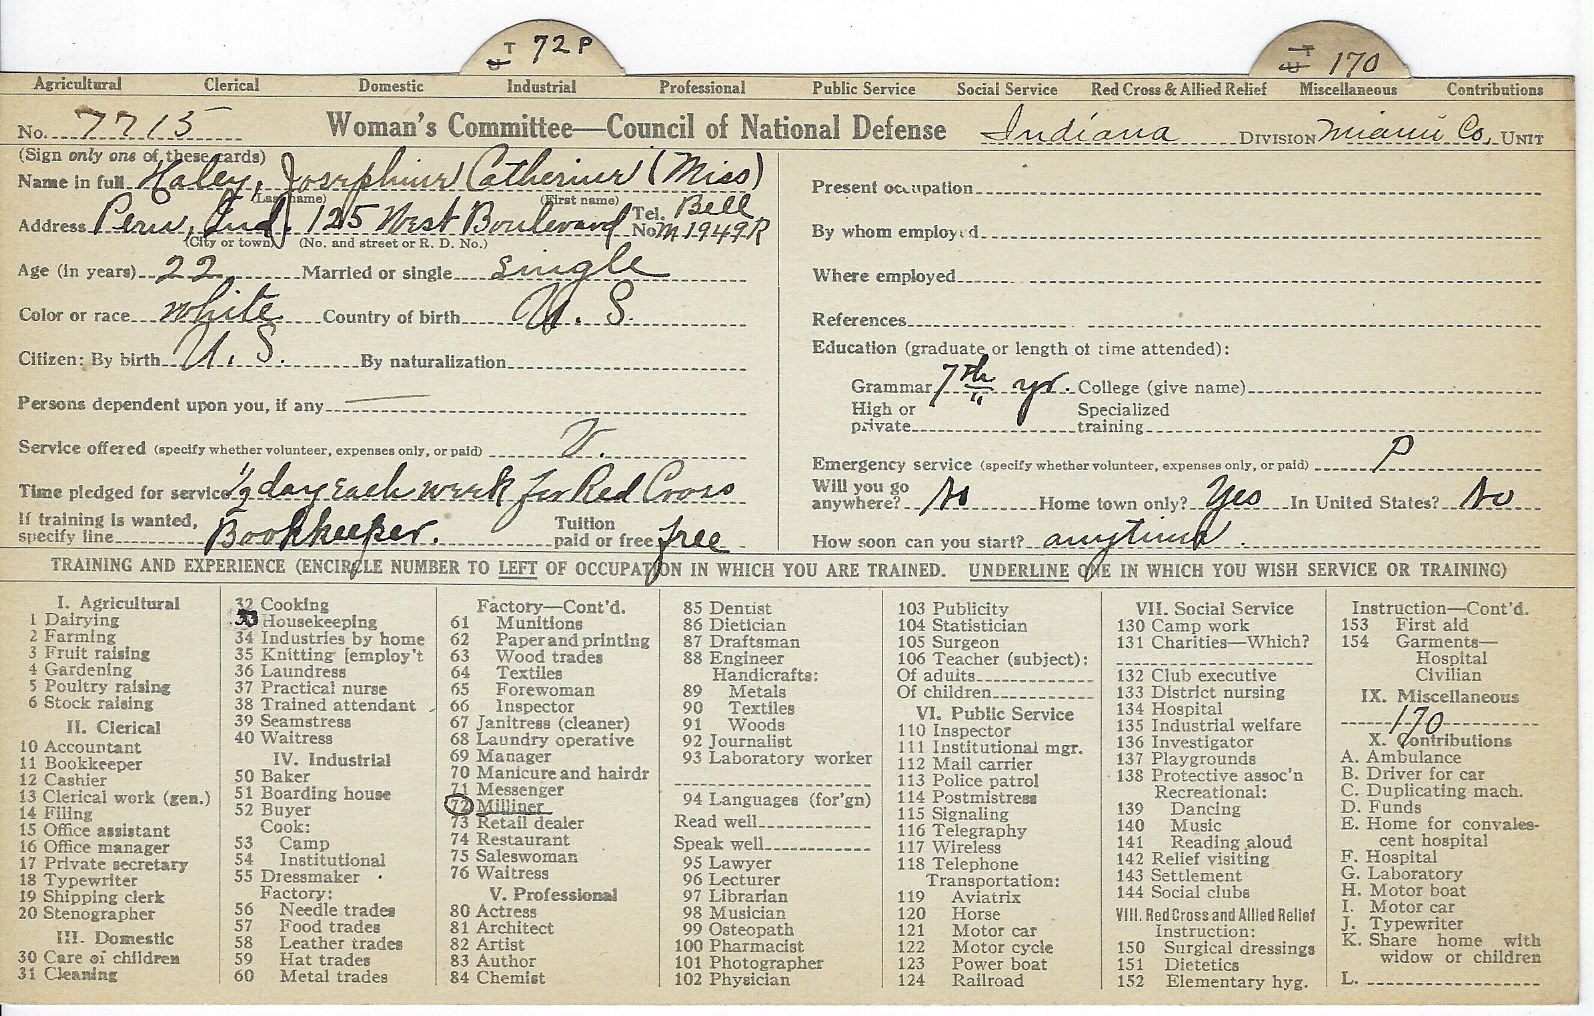 T U 72 P
T U 170
Agricultural Clerical Domestic Industrial Professional Public Service Social Service Red Cross & Allied Relief Miscellaneous Contributions
No. 7715 Woman's Committee—Council of National Defense Indiana DIVISION Miami Co. UNIT
(Sign only one of these cards)
Name in full Haley, Josephine Catherine (Miss)
(Last name) (First name)
Address Peru, Ind. 125 West Boulevard Tel. No. Bell M1949R
(City or town) (No. and street or R. D. No.)
Age (in years) 22 Married or single single
Color or race white Country of birth U. S.
Citizen: By birth U. S. By naturalization
Persons dependent upon you, if any —
Service offered (specify whether volunteer, expenses only, or paid) V.
Time pledged for service 1/2 day each week for Red Cross
If training is wanted, specify line Bookkeeper. Tuition paid or free free
Present occupation
By whom employed
Where employed
References
Education (graduate or length of time attended):
Grammar 7th yr. College (give name)
High or private Specialized training
Emergency service (specify whether volunteer, expenses only, or paid) P
Will you go anywhere? No Home town only? Yes In United States? No
How soon can you start? anytime.
TRAINING AND EXPERIENCE (ENCIRCLE NUMBER TO LEFT OF OCCUPATION IN WHICH YOU ARE TRAINED. UNDERLINE ONE IN WHICH YOU WISH SERVICE OR TRAINING)
I. Agricultural
1 Dairying
2 Farming
3 Fruit raising
4 Gardening
5 Poultry raising
6 Stock raising
II. Clerical
10 Accountant
11 Bookkeeper
12 Cashier
13 Clerical work (gen.)
14 Filing
15 Office assistant
16 Office manager
17 Private secretary
18 Typewriter
19 Shipping clerk
20 Stenographer
III. Domestic
30 Care of children
31 Cleaning
32 Cooking
33 Housekeeping
34 Industries by home
35 Knitting [employ't
36 Laundress
37 Practical nurse
38 Trained attendant
39 Seamstress
40 Waitress
IV. Industrial
50 Baker
51 Boarding house
52 Buyer
Cook:
53 Camp
54 Institutional
55 Dressmaker
Factory:
56 Needle trades
57 Food trades
58 Leather trades
59 Hat trades
60 Metal trades
Factory—Cont'd.
61 Munitions
62 Paper and printing
63 Wood trades
64 Textiles
65 Forewoman
66 Inspector
67 Janitress (cleaner)
68 Laundry operative
69 Manager
70 Manicure and hairdr
71 Messenger
72 Milliner
73 Retail dealer
74 Restaurant
75 Saleswoman
76 Waitress
V. Professional
80 Actress
81 Architect
82 Artist
83 Author
84 Chemist
85 Dentist
86 Dietician
87 Draftsman
88 Engineer
Handicrafts:
89 Metals
90 Textiles
91 Woods
92 Journalist
93 Laboratory worker
94 Languages (for'gn)
Read well
Speak well
95 Lawyer
96 Lecturer
97 Librarian
98 Musician
99 Osteopath
100 Pharmacist
101 Photographer
102 Physician
103 Publicity
104 Statistician
105 Surgeon
106 Teacher (subject):
Of adults
Of children
VI. Public Service
110 Inspector
111 Institutional mgr.
112 Mail carrier
113 Police patrol
114 Postmistress
115 Signaling
116 Telegraphy
117 Wireless
118 Telephone
Transportation:
119 Aviatrix
120 Horse
121 Motor car
122 Motor cycle
123 Power boat
124 Railroad
VII. Social Service
130 Camp work
131 Charities—Which?
132 Club executive
133 District nursing
134 Hospital
135 Industrial welfare
136 Investigator
137 Playgrounds
138 Protective assoc'n
Recreational:
139 Dancing
140 Music
141 Reading aloud
142 Relief visiting
143 Settlement
144 Social clubs
VIII. Red Cross and Allied Relief
Instruction:
150 Surgical dressings
151 Dietetics
152 Elementary hyg.
Instruction—Cont'd.
153 First aid
154 Garments—
Hospital
Civilian
IX. Miscellaneous
170
X. Contributions
A. Ambulance
B. Driver for car
C. Duplicating mach.
D. Funds
E. Home for convales-
cent hospital
F. Hospital
G. Laboratory
H. Motor boat
I. Motor car
J. Typewriter
K. Share home with
widow or children
L.